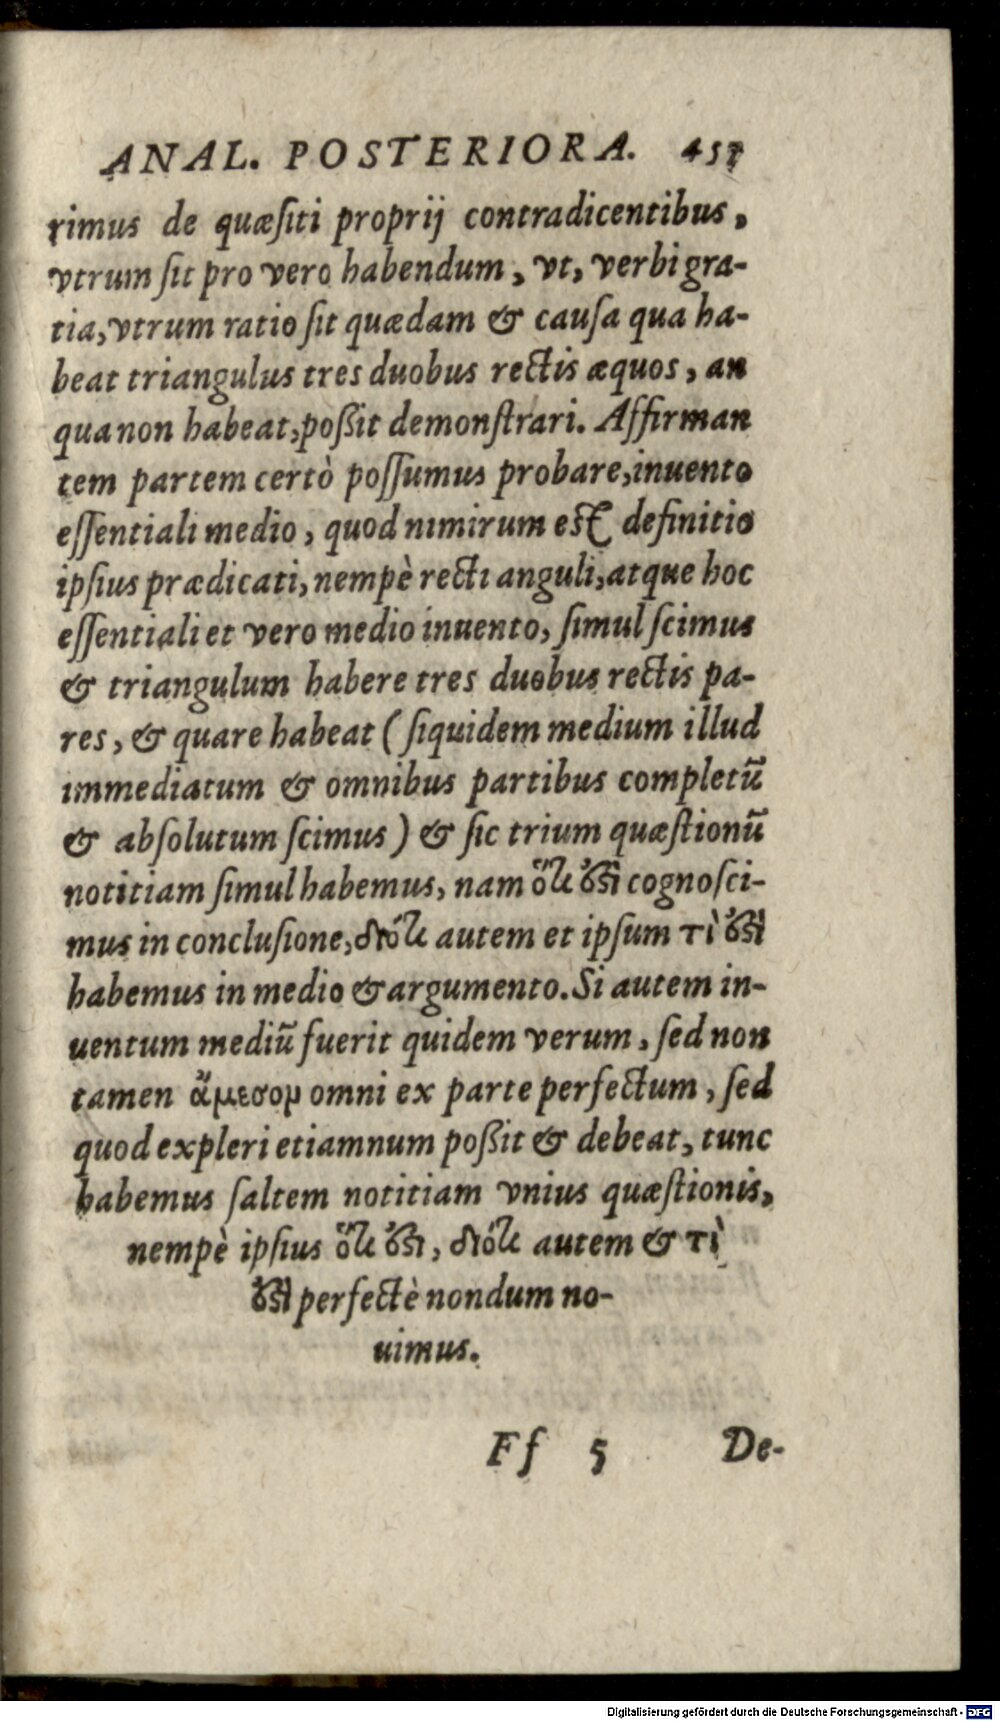 ANAL. POSTERIORA. 457
rimus de quæſiti proprij contradicentibus,
vtrum ſit pro vero habendum, vt, verbi gra-
tia, vtrum ratio ſit quædam & cauſa qua ha-
beat triangulus tres duobus rectis æquos, an
qua non habeat, poßit demonſtrari. Affirman
tem partem certò poſſumus probare, inuento
eſſentiali medio, quod nimirum eſt definitio
ipſius prædicati, nempè recti anguli, atque hoc
eſſentiali et vero medio inuento, ſimul ſcimus
& triangulum habere tres duobus rectis pa-
res, & quare habeat (ſiquidem medium illud
immediatum & omnibus partibus completũ
& abſolutum ſcimus) & ſic trium quæſtionũ
notitiam ſimul habemus, nam ὅτι ὅϛι cognoſci-
mus in concluſione, διότι autem et ipſum τὶ ὅϛὶ
habemus in medio & argumento. Si autem in-
uentum mediũ fuerit quidem verum, ſed non
tamen ἄμεσομ omni ex parte perfectum, ſed
quod expleri etiamnum poßit & debeat, tunc
habemus ſaltem notitiam vnius quæſtionis,
nempè ipſius ὅτι ὅϛι, διότι autem & τὶ
ὅϛὶ perfectè nondum no-
uimus.
Ff 5 De-
Digitalisierung gefördert durch die Deutsche Forschungsgemeinschaft - DFG